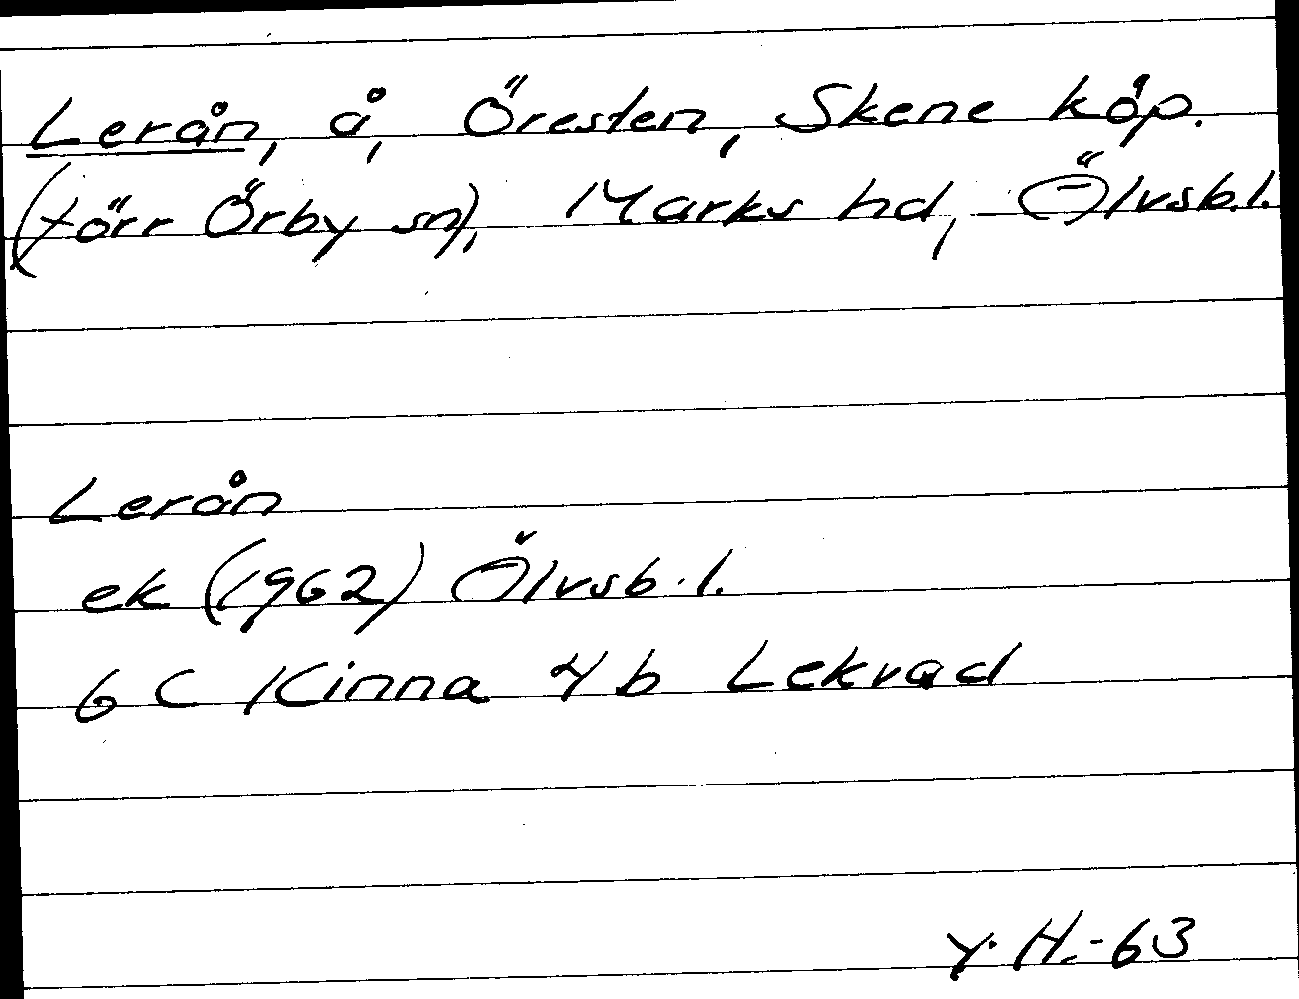 Lerån, å, Öresten, Skene köp.
(förr Örby sn), Marks hd, Älvsb.l.
Lerån
ek (1962) Älvsb.l.
6 C Kinna 4 b Lekvad
Y. H. -63